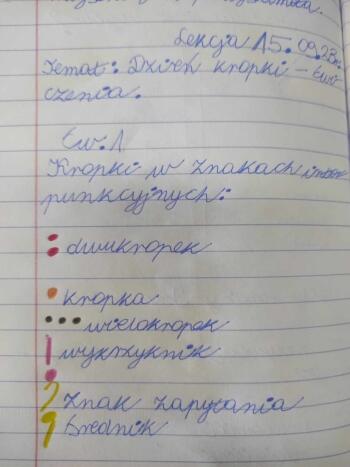 Lekcja 15.09.23r.
Temat: Dzień kropki – Ćwi-
czenia.
Ćw. 1
Kropki w znakach inter-
punkcyjnych:
: dwukropek
• kropka
... wielokropek
! wykrzyknik
? znak zapytania
; średnik